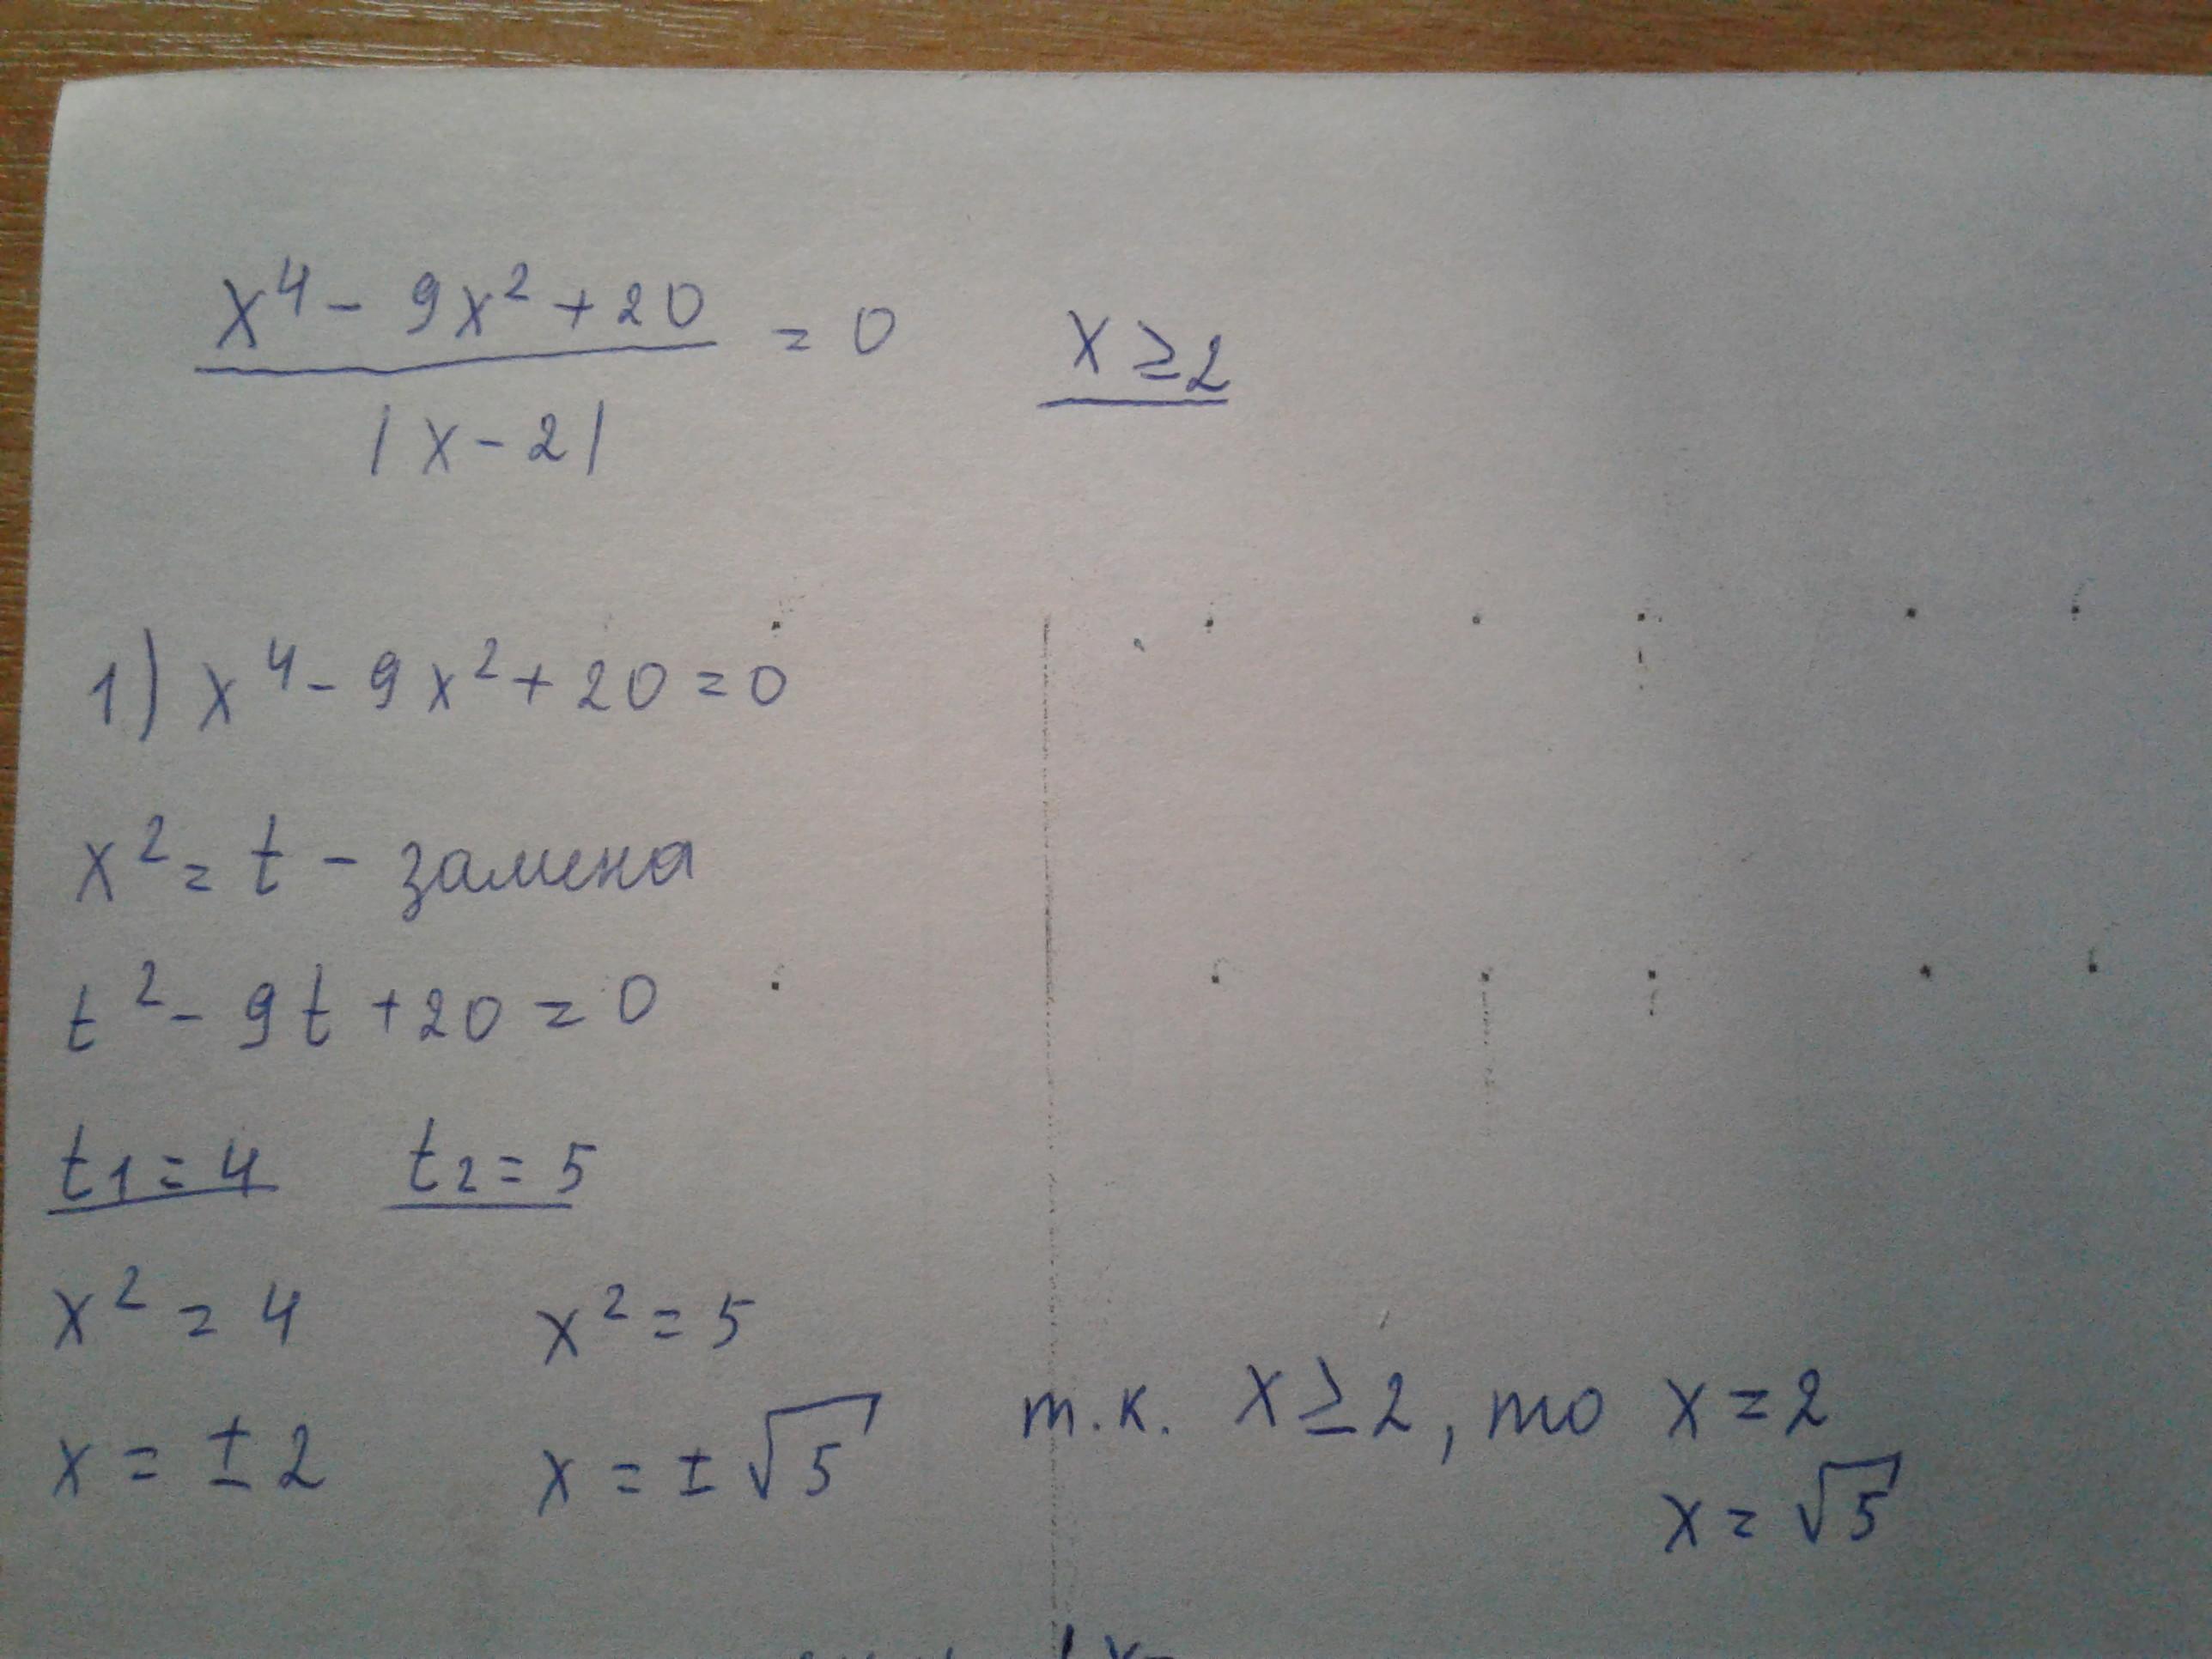 x⁴ - 9x² + 20 = 0   x ≥ 2
|x - 2|
1) x⁴ - 9x² + 20 = 0
x² = t - замена
t² - 9t + 20 = 0
t₁ = 4   t₂ = 5
x² = 4   x² = 5
x = ± 2   x = ± √5   т.к. x ≥ 2, то x = 2
x = √5